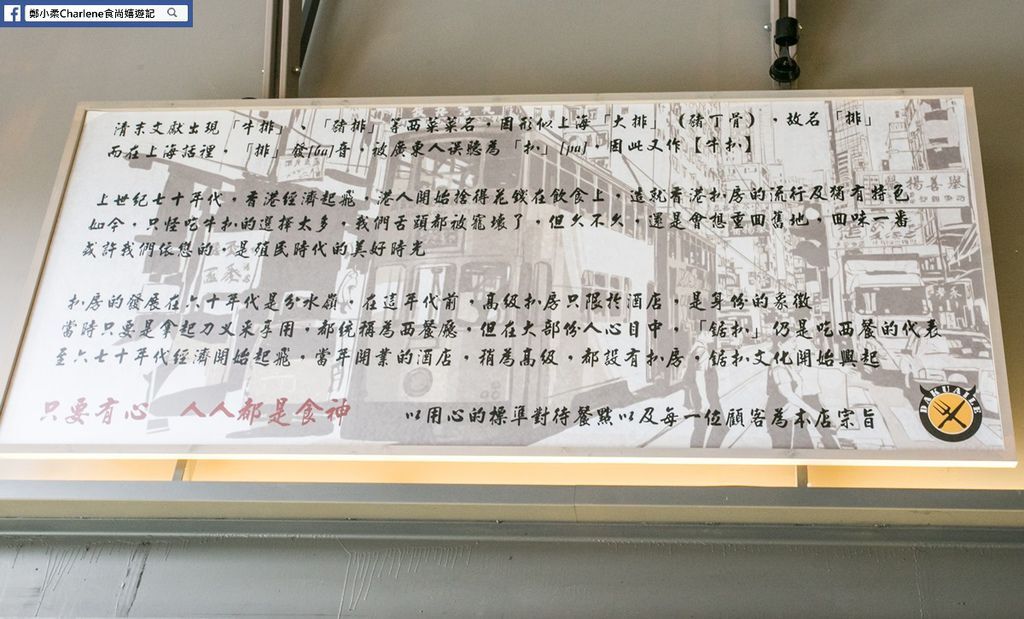 鄭小柔Charlene食尚嬉遊記
清末文獻出現「牛排」、「豬排」等西菜菜名，因形似上海「大排」（豬丁骨），故名「排」
而在上海話裡，「排」發[ba]音，被廣東人誤聽為「扒」[pa]，因此又作【牛扒】
上世紀七十年代，香港經濟起飛，港人開始捨得花錢在飲食上，造就香港扒房的流行及稍有特色
如今，只怪吃牛扒的選擇太多，我們舌頭都被寵壞了，但久不久，還是會想重回舊地，回味一番
或許我們依戀的，是殖民時代的美好時光
扒房的發展在六十年代是分水嶺，在這年代前，高級扒房只限於酒店，是身份的象徵
當時只要是拿起刀叉來享用，都統稱為西餐廳，但在大部份人心目中，「鋸扒」仍是吃西餐的代表
至六七十年代經濟開始起飛，當年開業的酒店，稍為高級，都設有扒房，鋸扒文化開始興起
只要有心 人人都是食神
以用心的標準對待餐點以及每一位顧客為本店宗旨